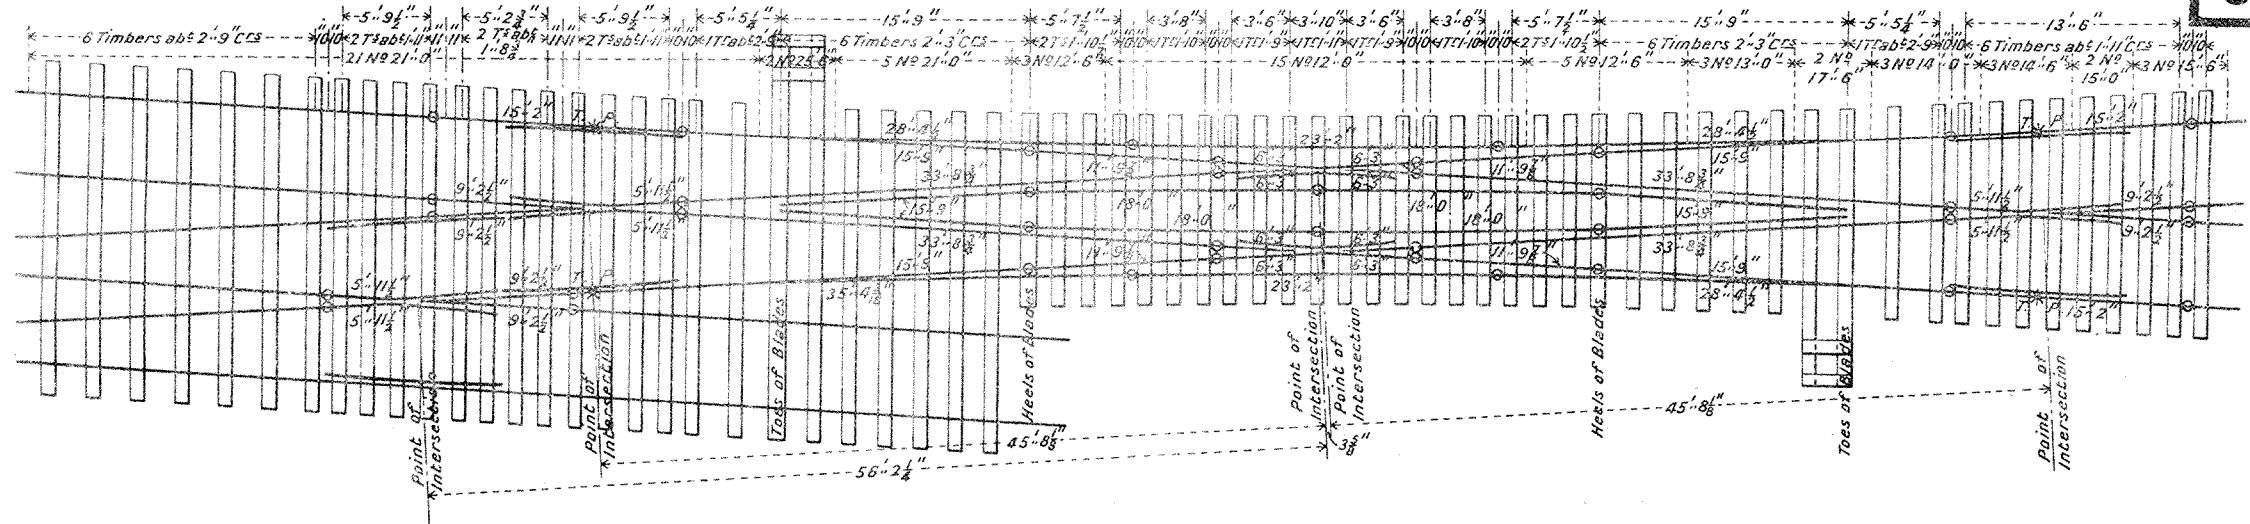 5'..9½" 5'..2¾" 5'..9½" 5'..5¼" 15'..9" 5'..7½" 3'..8" 3'..6" 3'..10" 3'..6" 3'..8" 5'..7½" 15'..9" 5'..5¼" 13'..6"
6 Timbers abt 2'..9" Crs 10 10 2 Ts abt 1'..11" 11" 11" 2 Ts abt 1'..8¾" 11" 11" 2 Ts abt 1'..11" 10 10 1 T abt 2'..9" 6 Timbers 2'..3" Crs 2 Ts 1'..10½" 10 10 1 T 1'..10" 10 10 1 T 1'..9" 1 T 1'..11" 1 T 1'..9" 10 10 1 T 1'..10" 10 10 2 Ts 1'..10½" 6 Timbers 2'..3" Crs 1 T abt 2'..9" 10 10 6 Timbers abt 1'..11" Crs 10 10
21 No 21'..0" 5 No 21'..0" 3 No 12'..6" 15 No 12'..0" 5 No 12'..6" 3 No 13'..0" 2 No 17'..6" 3 No 14'..0" 3 No 14'..6" 2 No 15'..0" 3 No 15'..6"
15'..2" T. P. 28'..4½" 23'..2" 28'..4½" T. P. 15'..2"
15'..9" 6'..3" 6'..3" 15'..9"
33'..8¾" 11'..9⅞" 6'..3" 6'..3" 11'..9⅞" 33'..8¾"
9'..2½" 5'..11½" 15'..9" 18'..0" 18'..0" 15'..9" 5'..11½" 9'..2½"
9'..2½" 5'..11½" 18'..0" 18'..0" 5'..11½" 9'..2½"
33'..8¾" 11'..9⅞" 6'..3" 6'..3" 11'..9⅞" 33'..8¾"
5'..11½" 9'..2½" T. P. 15'..9" 6'..3" 6'..3" 15'..9"
5'..11½" 9'..2½" 23'..2" 28'..4½" T. P. 15'..2"
Point of Intersection
Point of Intersection
Toes of Blades
Heels of Blades
Point of Intersection
Point of Intersection
Heels of Blades
Toes of Blades
Point of Intersection
45'..8⅛" 3⅝" 45'..8⅛"
56'..2¼"